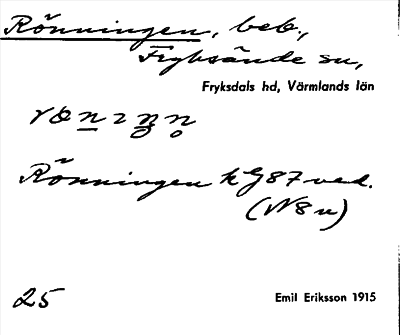 Rönningen, beb.,
Fryksände sn,
Fryksdals hd, Värmlands län
Rönningen kG87 ved.
(N8u)
25
Emil Eriksson 1915